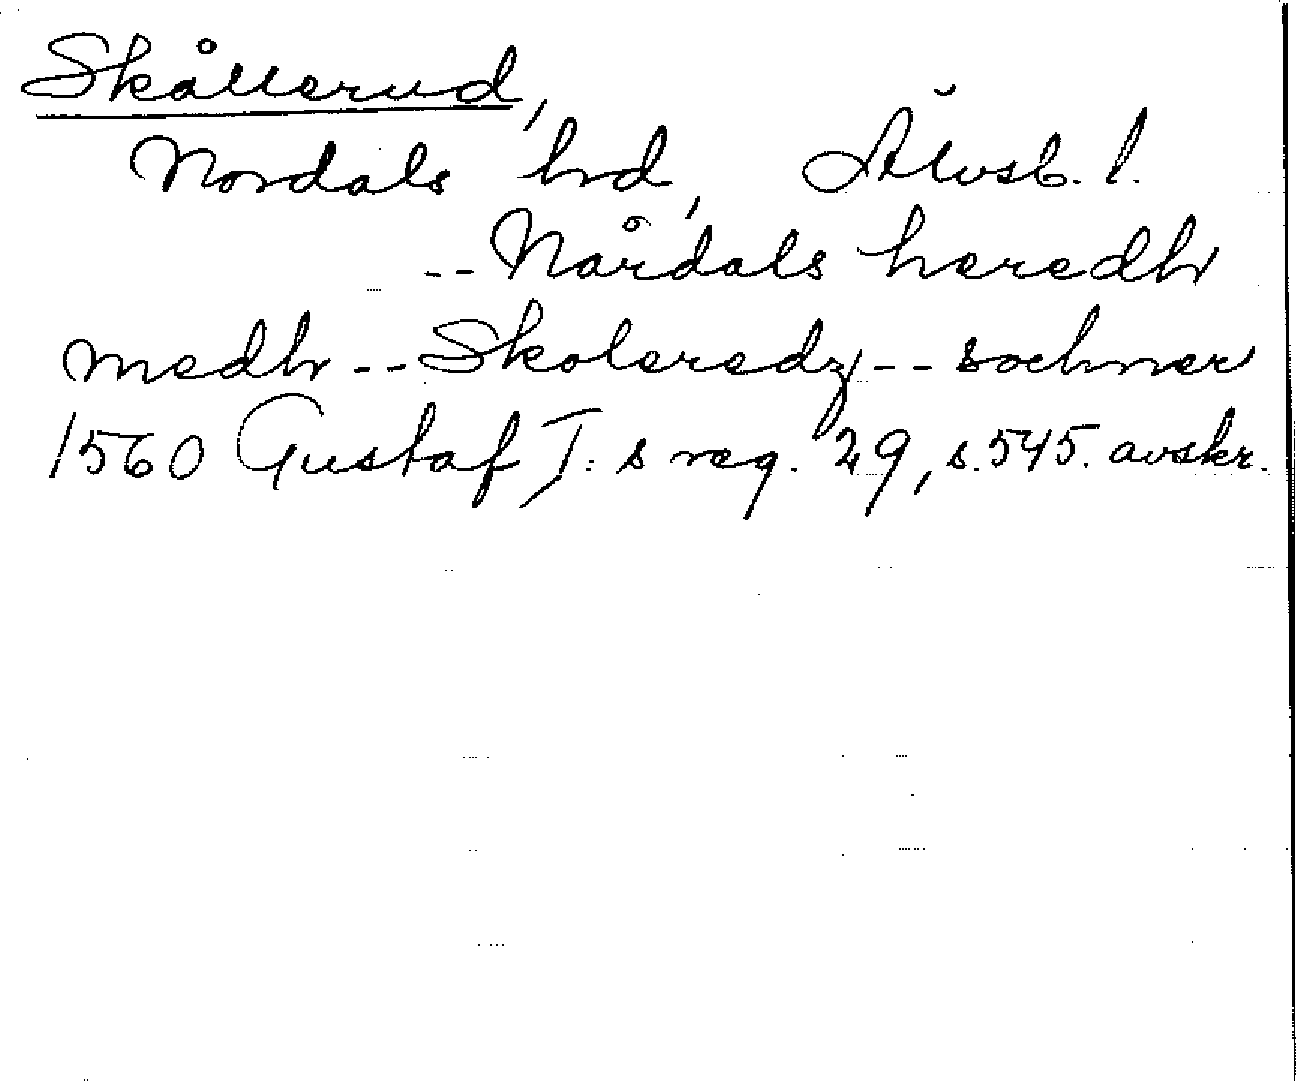 Skållerud,
Nordals hrd, Älvsb. l.
-- Nårdals heredh
medh -- Skoleredz -- sochner
1560 Gustaf I:s reg. 29, s. 545. avskr.